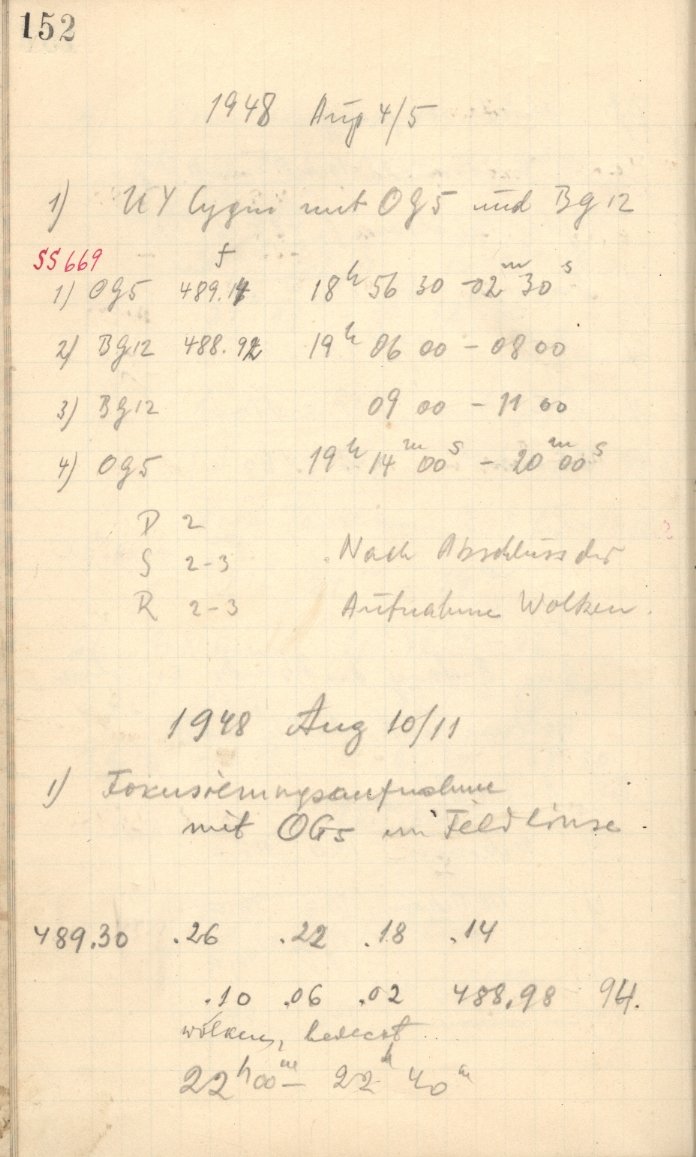 152
1948 Aug 4/5
1) UY Cygni mit OG5 und BG12
SS669 f
1) OG5 489.14 18h 56 30 - 02m 30s
2) BG12 488.92 19h 06 00 - 08 00
3) BG12 09 00 - 11 00
4) OG5 19h 14m 00s - 20m 00s
D 2
S 2-3 Nach Abschluss der
R 2-3 Aufnahme Wolken.
1948 Aug 10/11
1) Fokusierungsaufnahme
mit OG5 in Feldlinse.
489.30 .26 .22 .18 .14
.10 .06 .02 488.98 94.
wolken, bedeckt
22h 00m - 22h 40m